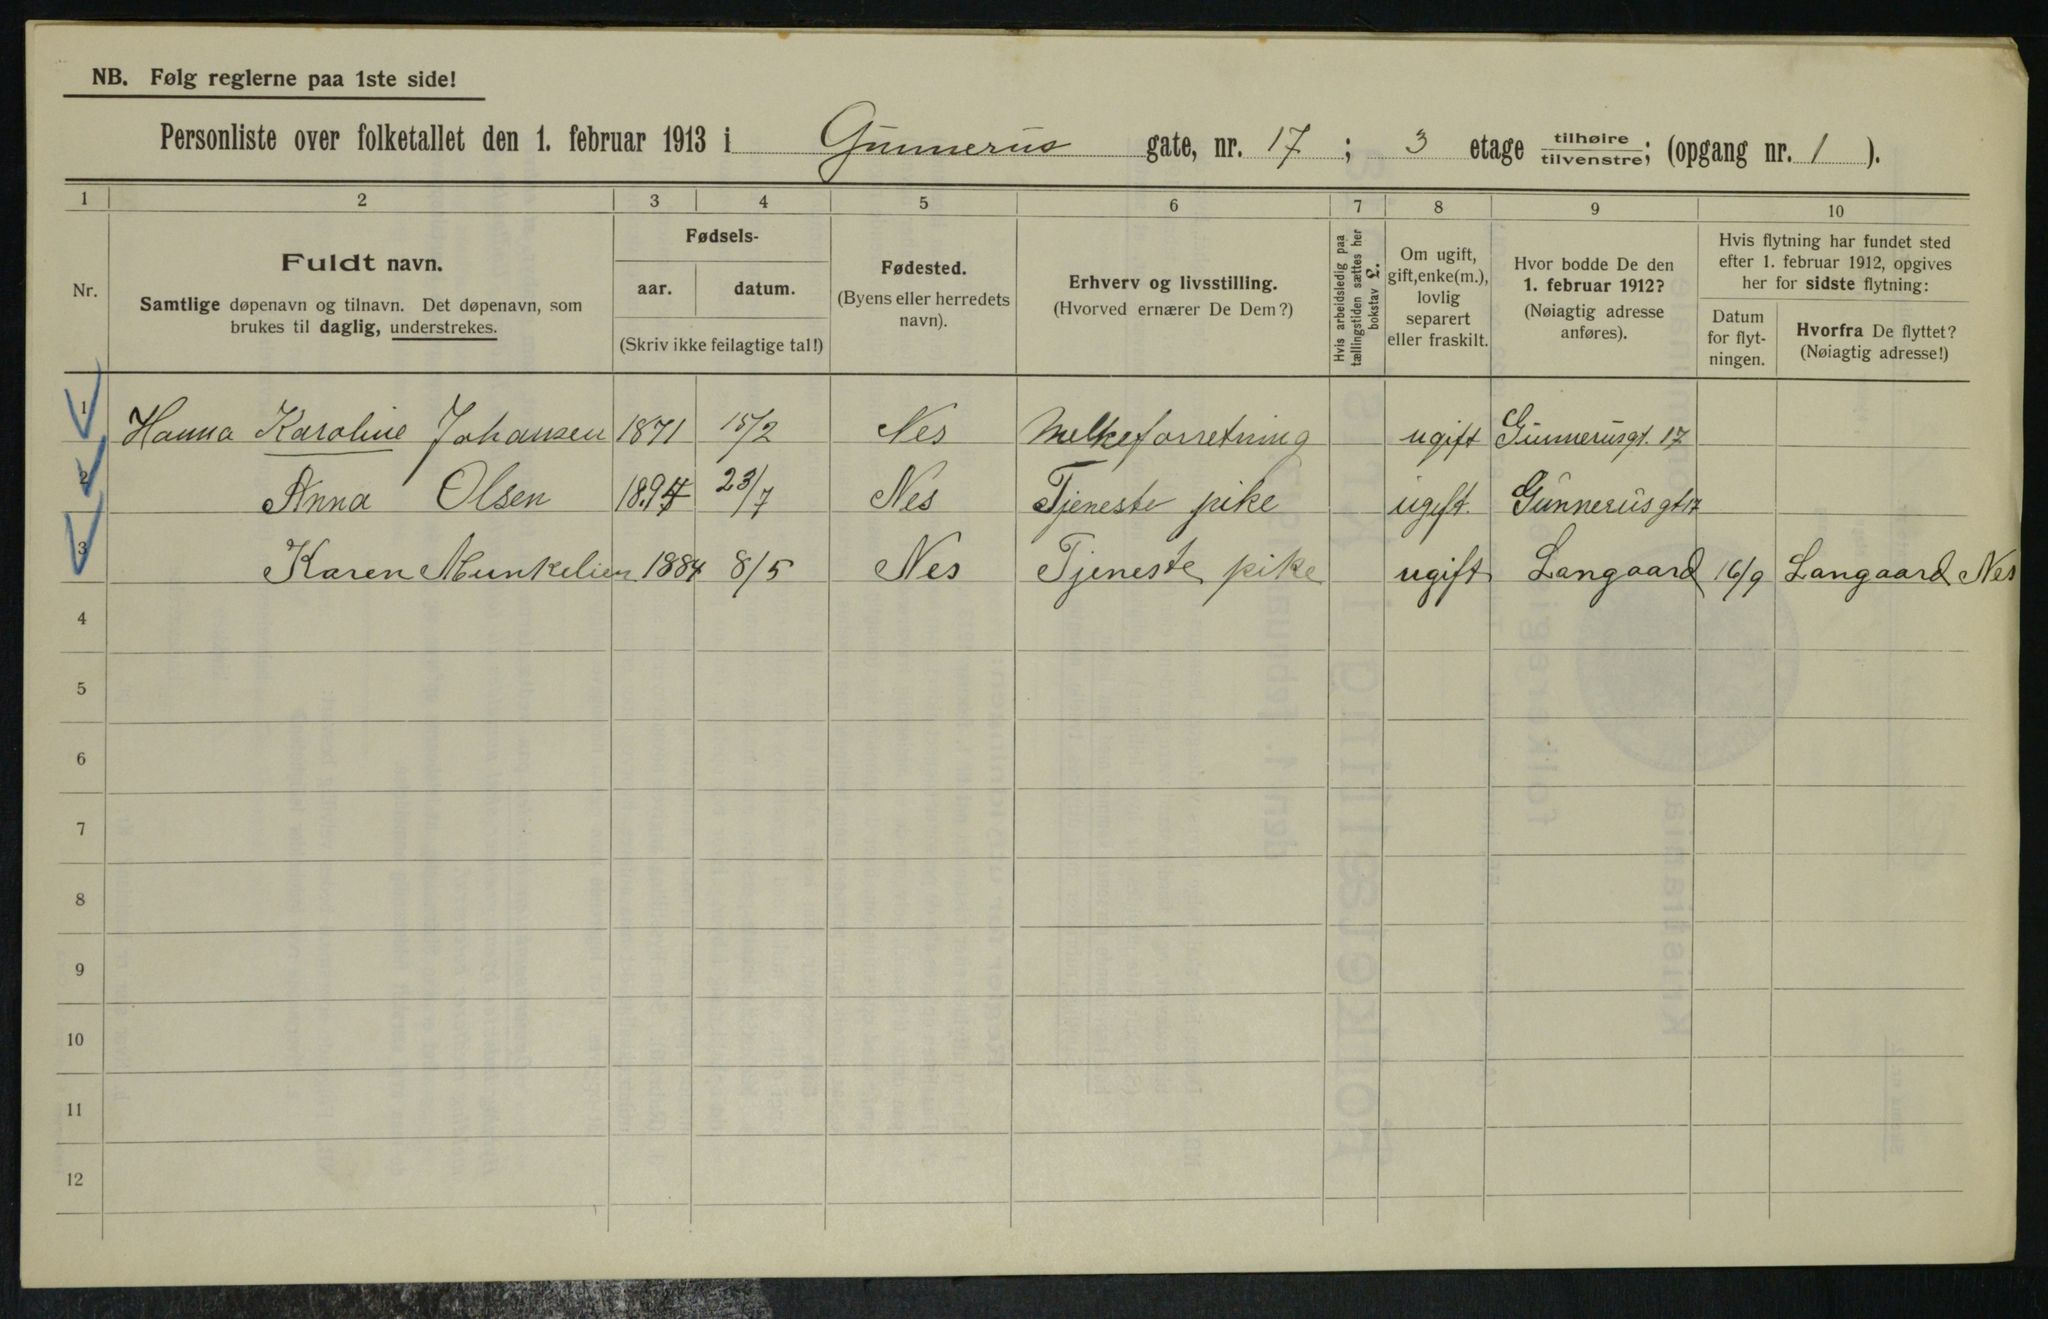 NB. Følg reglerne paa 1ste side!
Personliste over folketallet den 1. februar 1913 i Gunnerus gate, nr. 17; 3 etage tilhøire tilvenstre; (opgang nr. 1).
1 2 3 4 5 6 7 8 9 10
Nr.
Fuldt navn.
Samtlige døpenavn og tilnavn. Det døpenavn, som
brukes til daglig, understrekes.
Fødsels-
aar. datum.
(Skriv ikke feilagtige tal!)
Fødested.
(Byens eller herredets
navn).
Erhverv og livsstilling.
(Hvorved ernærer De Dem?)
Hvis arbeidsledig paa
tællingstiden sættes her
bokstav L.
Om ugift,
gift, enke(m.),
lovlig
separert
eller fraskilt.
Hvor bodde De den
1. februar 1912?
(Nøiagtig adresse
anføres).
Hvis flytning har fundet sted
efter 1. februar 1912, opgives
her for sidste flytning:
Datum
for flyt-
ningen.
Hvorfra De flyttet?
(Nøiagtig adresse!)
1 Hanna Karoline Johansen 1871 15/2 Nes Melkeforretning ugift Gunnerusgt. 17
2 Anna Olsen 1894 23/7 Nes Tjeneste pike ugift. Gunnerusgt 17
3 Karen Munkelien 1884 8/5 Nes Tjeneste pike ugift Langaard 16/9 Langaard Nes
4
5
6
7
8
9
10
11
12